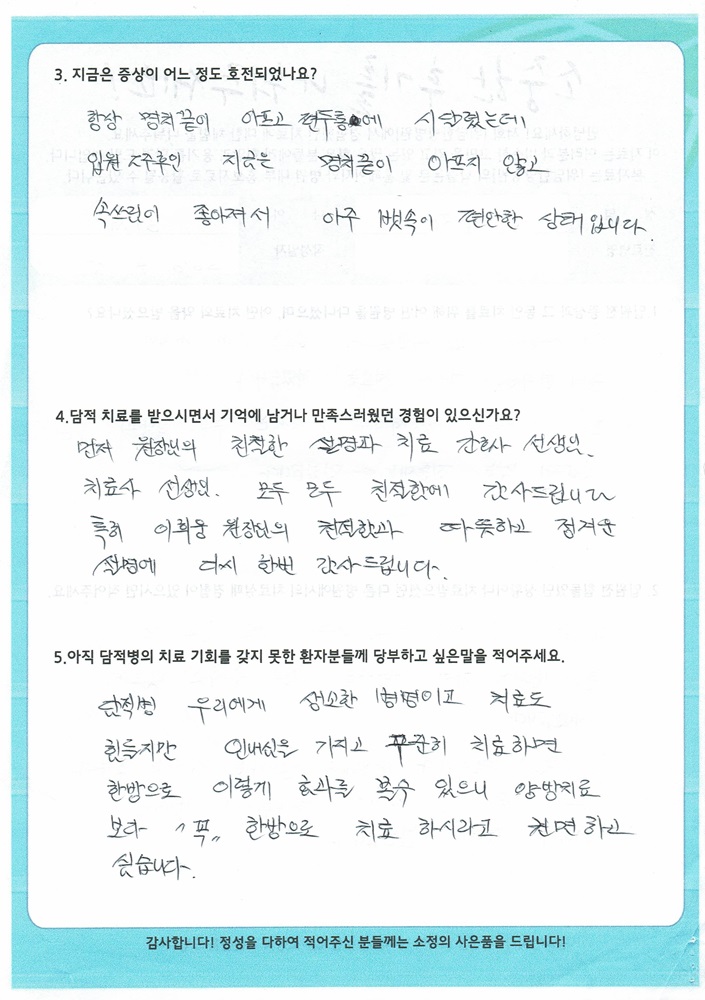 3. 지금은 증상이 어느 정도 호전되었나요?
항상 명치끝이 아프고 편두통에 시달렸는데
입원 2주후인 지금은 명치끝이 아프지 않고
속쓰린이 좋아져서 아주 뱃속이 편안한 상태입니다.
4.담적 치료를 받으시면서 기억에 남거나 만족스러웠던 경험이 있으신가요?
먼저 원장님의 친절한 설명과 치료 간호사 선생님.
치료사 선생님. 모두 모두 친절함에 감사드립니다
특히 이희웅 원장님의 친절함과 따뜻하고 정겨운
설명에 다시 한번 감사드립니다.
5.아직 담적병의 치료 기회를 갖지 못한 환자분들께 당부하고 싶은말을 적어주세요.
담적병 우리에게 생소한 병명이고 치료도
힘들지만 인내심을 가지고 꾸준히 치료하면
한방으로 이렇게 효과를 볼수 있으니 양방치료
보다 "꼭" 한방으로 치료 하시라고 권면하고
싶습니다.
감사합니다! 정성을 다하여 적어주신 분들께는 소정의 사은품을 드립니다!